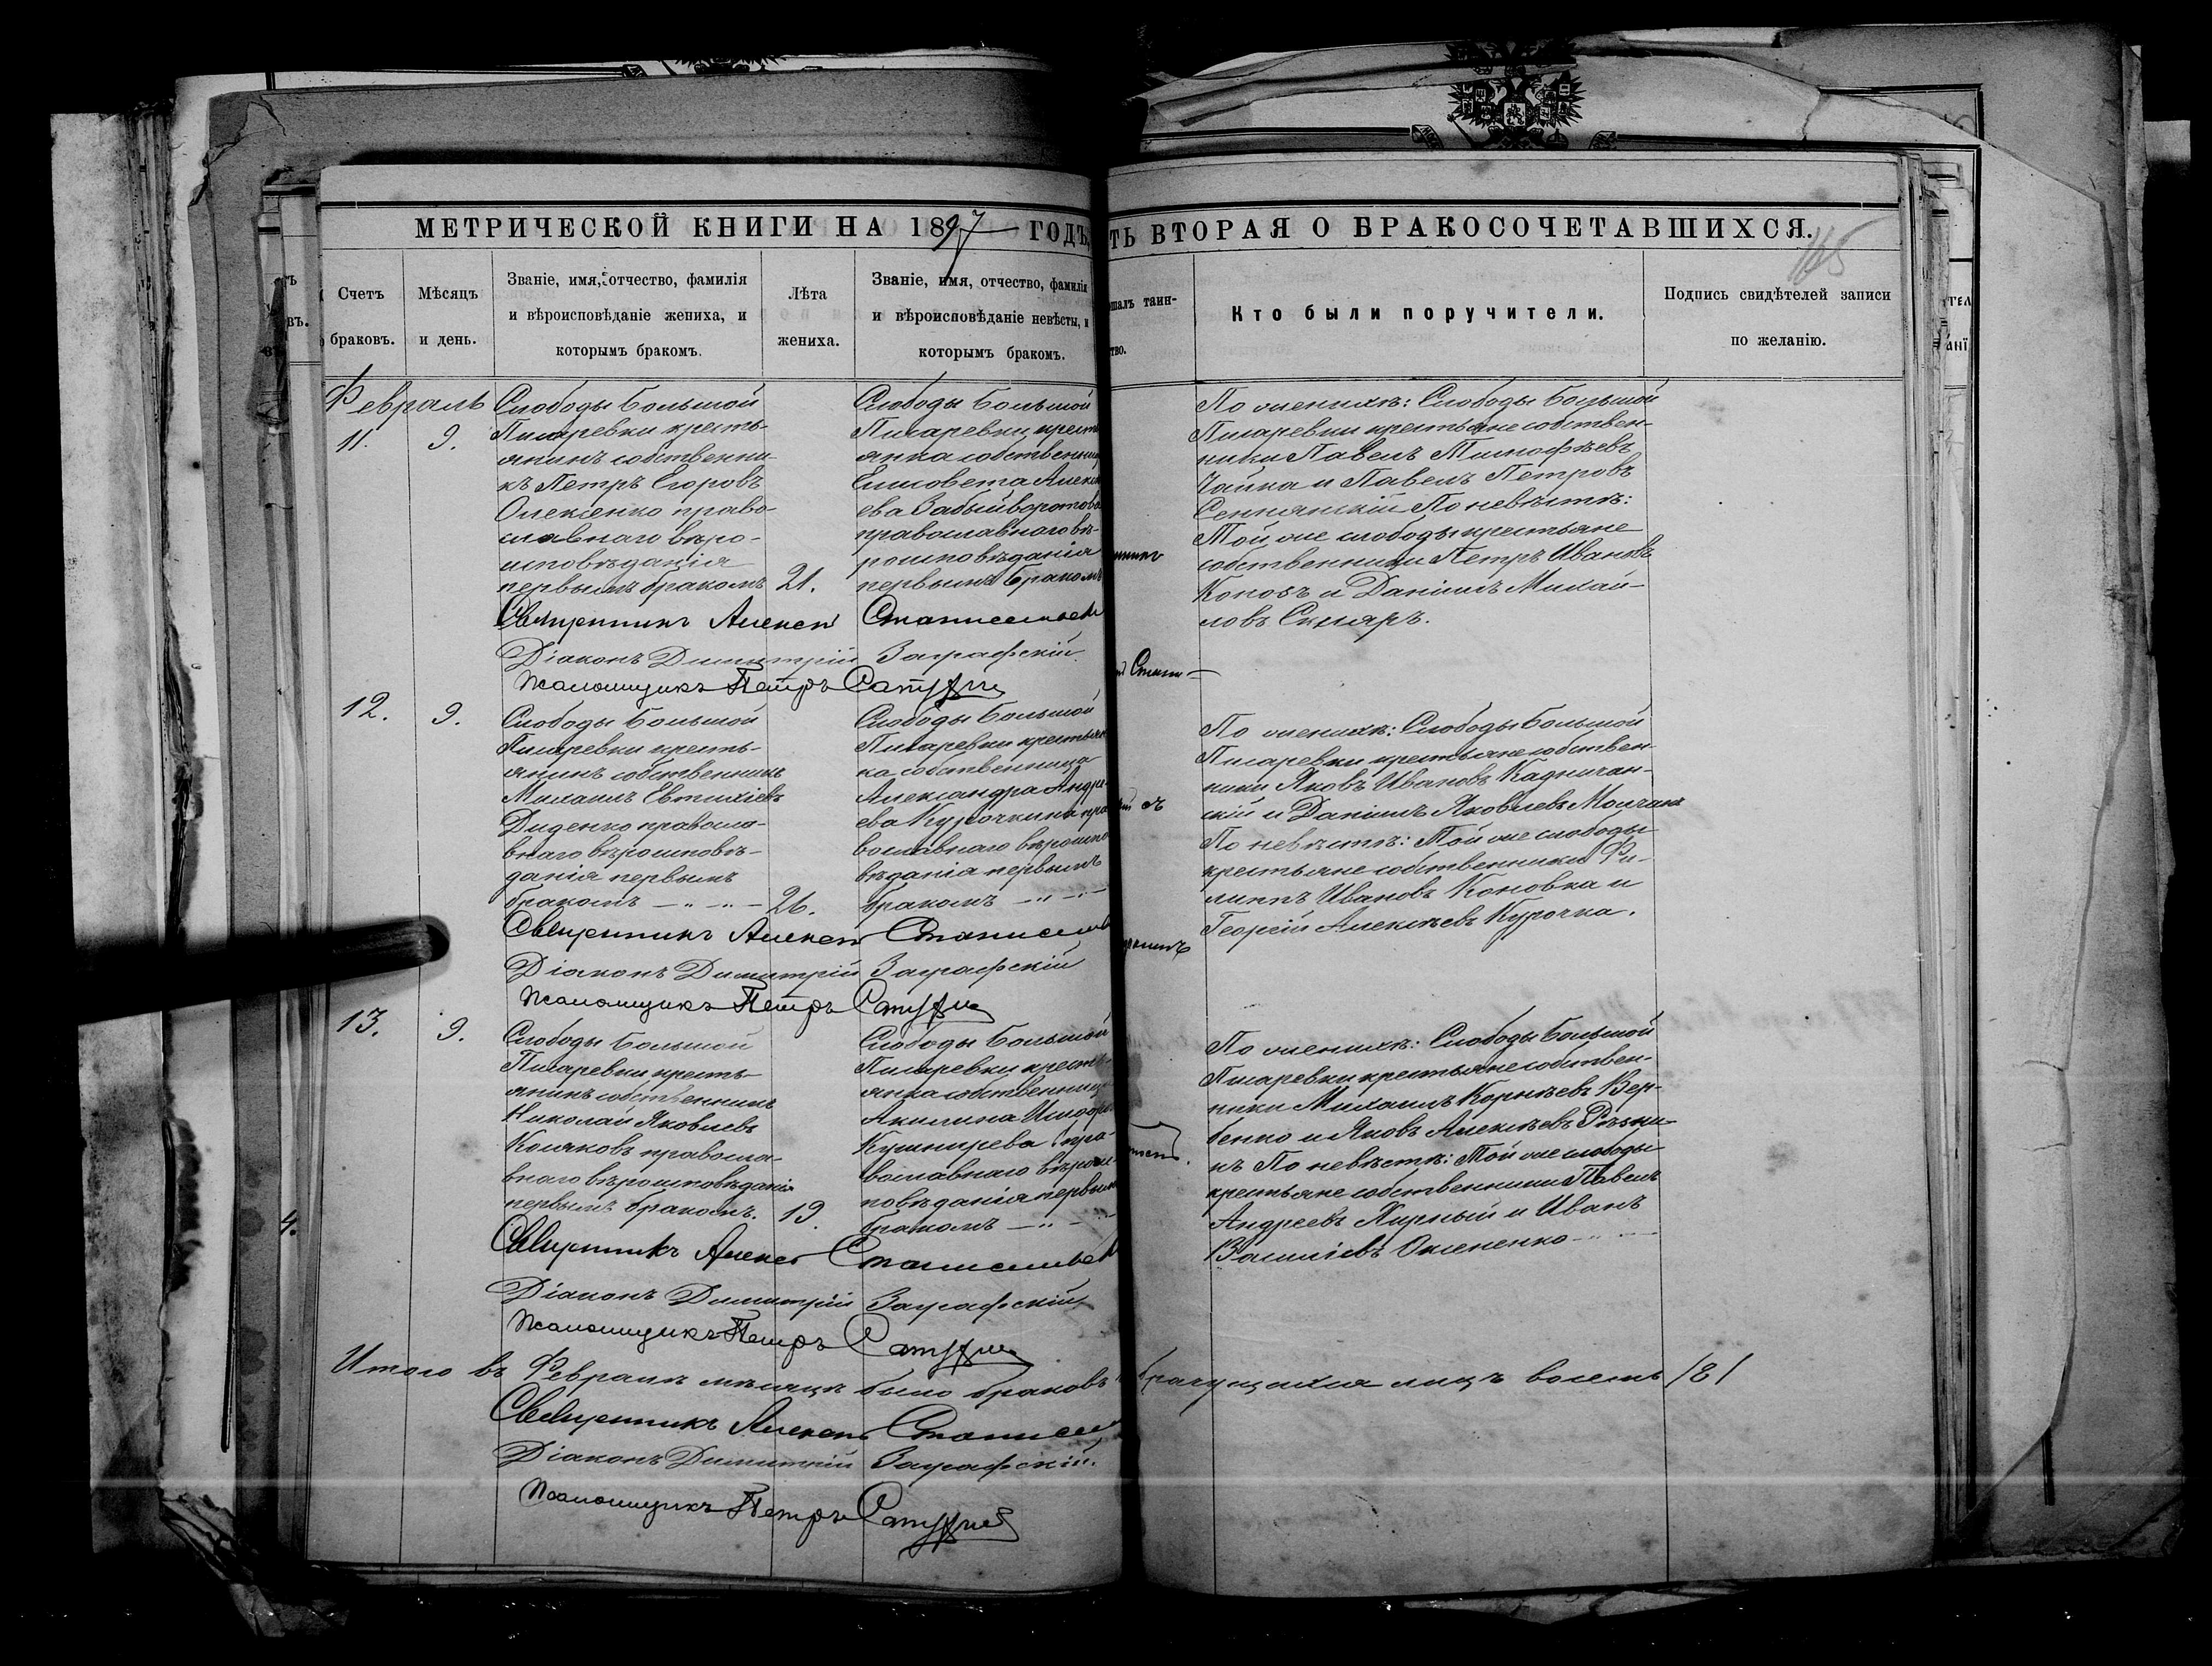 МЕТРИЧЕСКОЙ КНИГИ НА 1897 ГОДЪ,
ТЬ ВТОРАЯ О БРАКОСОЧЕТАВШИХСЯ.
165
Счетъ браковъ.
Мѣсяцъ и день.
Званіе, имя, отчество, фамилія
и вѣроисповѣданіе жениха, и
которымъ бракомъ.
Лѣта
жениха.
Званіе, имя, отчество, фамилія
и вѣроисповѣданіе невѣсты, и
которымъ бракомъ.
таин-
тво.
Кто были поручители.
Подпись свидѣтелей записи
по желанію.
Февраль
11.
9.
Слободы Большой
Писаревки кресть-
янинъ собственни-
къ Петръ Егоровъ
Олексенко право-
славнаго вѣро-
исповѣданія
первымъ бракомъ
21.
Слободы Большой
Писаревки крест
янка собственниц
Елисовета Алекс
ева Забыйворотова
православнаго вѣ-
роисповѣданія
первымъ бракомъ
По женихѣ: Слободы Большой
Писаревки крестьяне собствен-
ники Павелъ Тимофѣевъ
Чайка и Павелъ Петровъ
Сеннянскій По невѣстѣ:
Той же слободы крестьяне
собственники Петръ Ивановъ
Коповъ и Даніилъ Михай-
ловъ Скляръ.
Священникъ Алексѣй Станиславск
Діаконъ Димитрій Заграфскій
Псаломщикъ Петръ
12.
9.
Слободы Большой
Писаревки кресть-
янинъ собственникъ
Михаилъ Евтихіевъ
Диденко правосла-
внаго вѣроисповѣ-
данія первымъ
бракомъ
26.
Слободы Большой
Писаревки крестьян
ка собственница
Александра Андре-
ева Курочкина пра
вославнаго вѣроиспо
вѣданія первымъ
бракомъ
По женихѣ: Слободы Большой
Писаревки крестьяне собствен-
ники Яковъ Ивановъ Кадничан-
скій и Даніилъ Яковлевъ Молчанъ
По невѣстѣ: Той же слободы
крестьяне собственники Фи-
липпъ Ивановъ Коновка и
Георгій Алексѣевъ Курочка.
Священникъ Алексѣй
Діаконъ Димитрій Заграфскій
Псаломщикъ Петръ
13.
9.
Слободы Большой
Писаревки кресть-
янинъ собственникъ
Николай Яковлевъ
Коляковъ правосла-
внаго вѣроисповѣданія
первымъ бракомъ.
19.
Слободы Большой
Писаревки кресть-
янка собственница
Акилина Исидоро
Кушнирева пра-
вославнаго вѣроис-
повѣданія первым
бракомъ
По женихѣ: Слободы Большой
Писаревки крестьяне собствен-
ники Михаилъ Корнѣевъ Вер-
бенко и Яковъ Алексѣевъ Рѣзни-
къ По невѣстѣ: Той же слободы
крестьяне собственники Павелъ
Андреевъ Жирный и Иванъ
Василіевъ Оксененко
Священникъ Алексѣй
Діаконъ Димитрій Заграфскій
Псаломщикъ Петръ
Итого въ Февралѣ мѣсяцѣ было браковъ
брачущихся лицъ восемь /8/
Священникъ Алексѣй
Діаконъ Димитрій Заграфскій.
Псаломщикъ Петръ